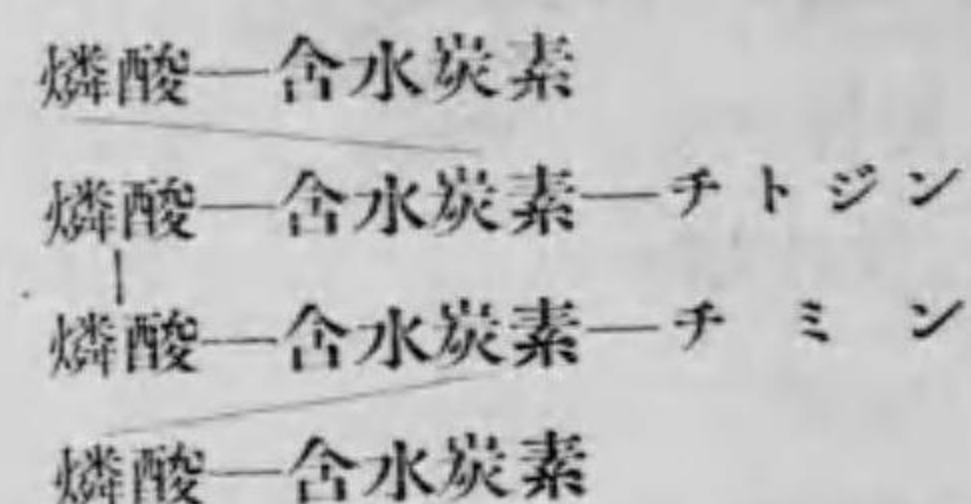 燐酸—含水炭素
燐酸—含水炭素—チトジン
燐酸—含水炭素—チミン
燐酸—含水炭素